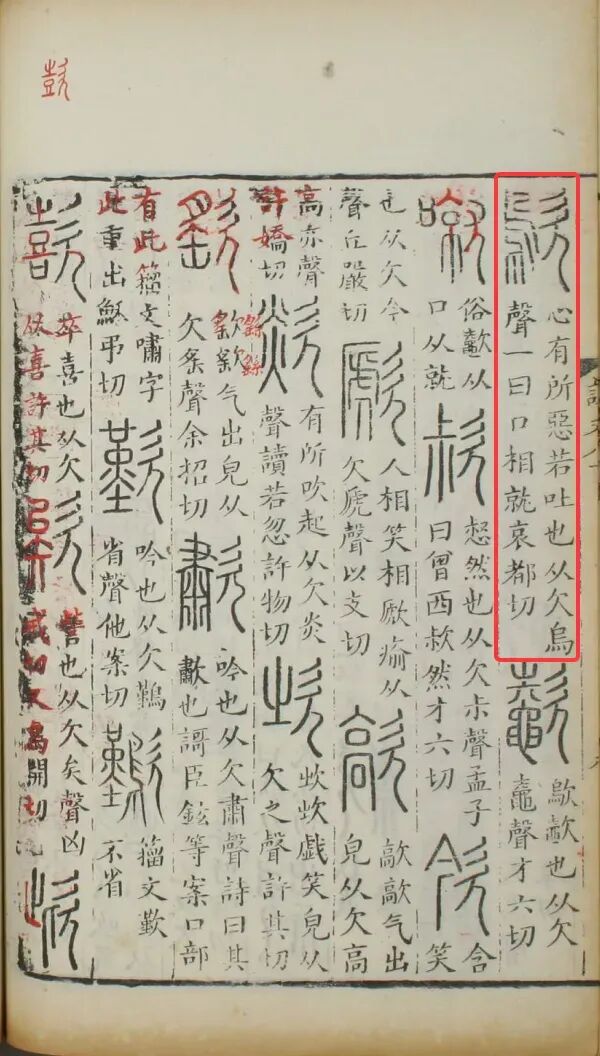 歖
歍
心有所惡若吐也从欠烏
聲一曰口相就哀都切
歍歜也从欠
鼀聲才六切
噈
俗从
口从就
惄然也从欠尗聲孟子
曰曾西然才六切
含
笑
也从欠今
聲丘嚴切
歋
人相笑相歋瘉从
欠虒聲以支切
歊
歊歊气出
皃从欠高
高亦聲
許嬌切
欻
有所吹起从欠炎
聲讀若忽許物切
㰞
㰞㰞戲笑皃从
欠之聲許其切
气出皃从
欠䍃聲余招切
歗
吟也从欠肅聲詩曰其
歗也謌臣鉉等案口部
有此籒文嘯字
此重出穌弔切
歎
吟也从欠鸛
省聲他案切
籒文歎
不省
歖
卒喜也从欠
从喜許其切
欸
訾也从欠矣聲凶
戒切又烏開切